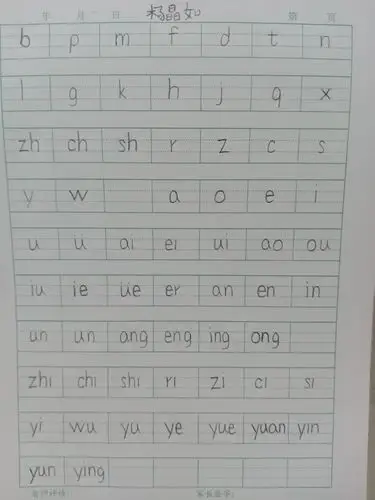 年 月 日 杨晶如 第 页
b p m f d t n
l g k h j q x
zh ch sh r z c s
y w a o e i
u ü ai ei ui ao ou
iu ie üe er an en in
un ün ang eng ing ong
zhi chi shi ri zi ci si
yi wu yu ye yue yuan yin
yun ying
老师评语: 家长签字: